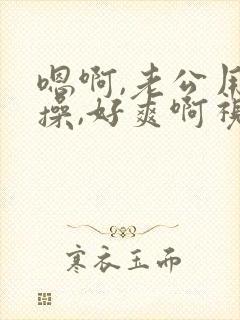 嗯啊,老公用
操,好爽啊视
寒衣玉而